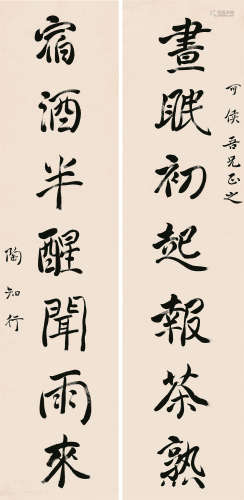 可侯吾兄正之
晝眠初起報茶熟
宿酒半醒聞雨來
陶知行